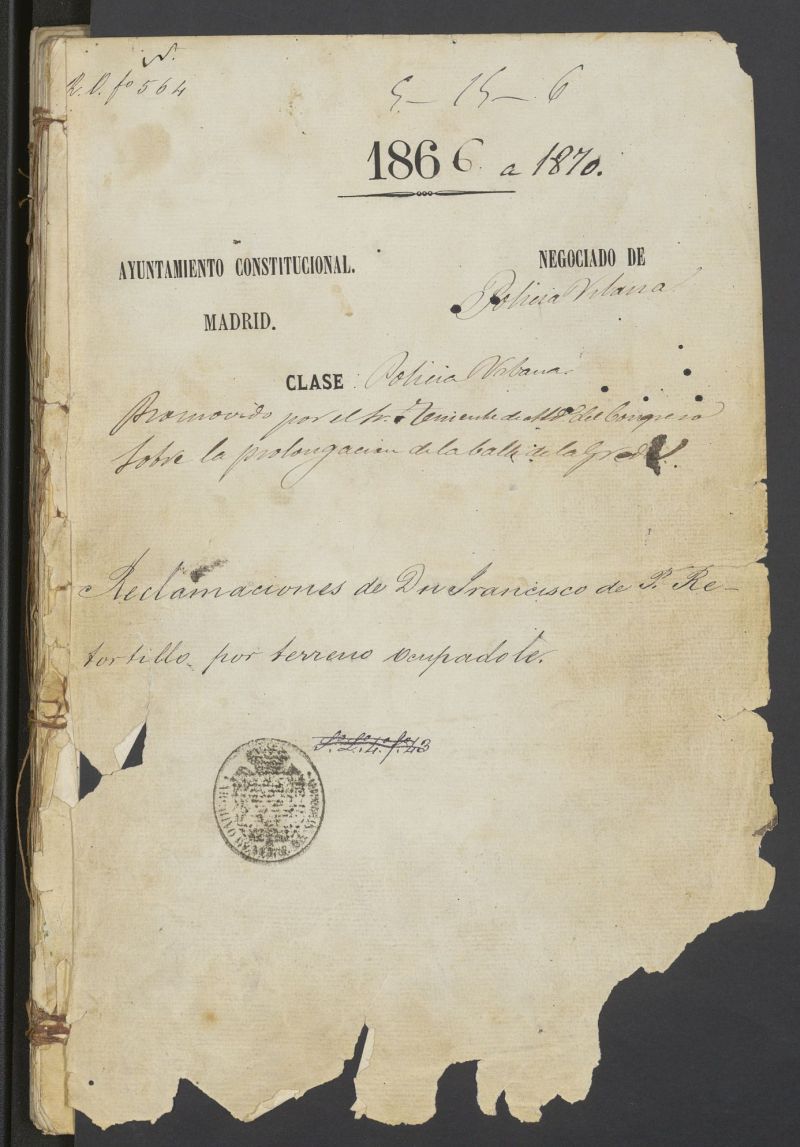 R. O. fº 564
5 - 15 - 6
1866 a 1870.
AYUNTAMIENTO CONSTITUCIONAL.
MADRID.
NEGOCIADO DE
Policia Urbana
CLASE Policia Urbana
Promovido por el Sr. Teniente de del Congreso
sobre la prolongacion de la Calle de la Greda
Reclamaciones de Dn Francisco de P. Re-
tortillo por terreno ocupadole.